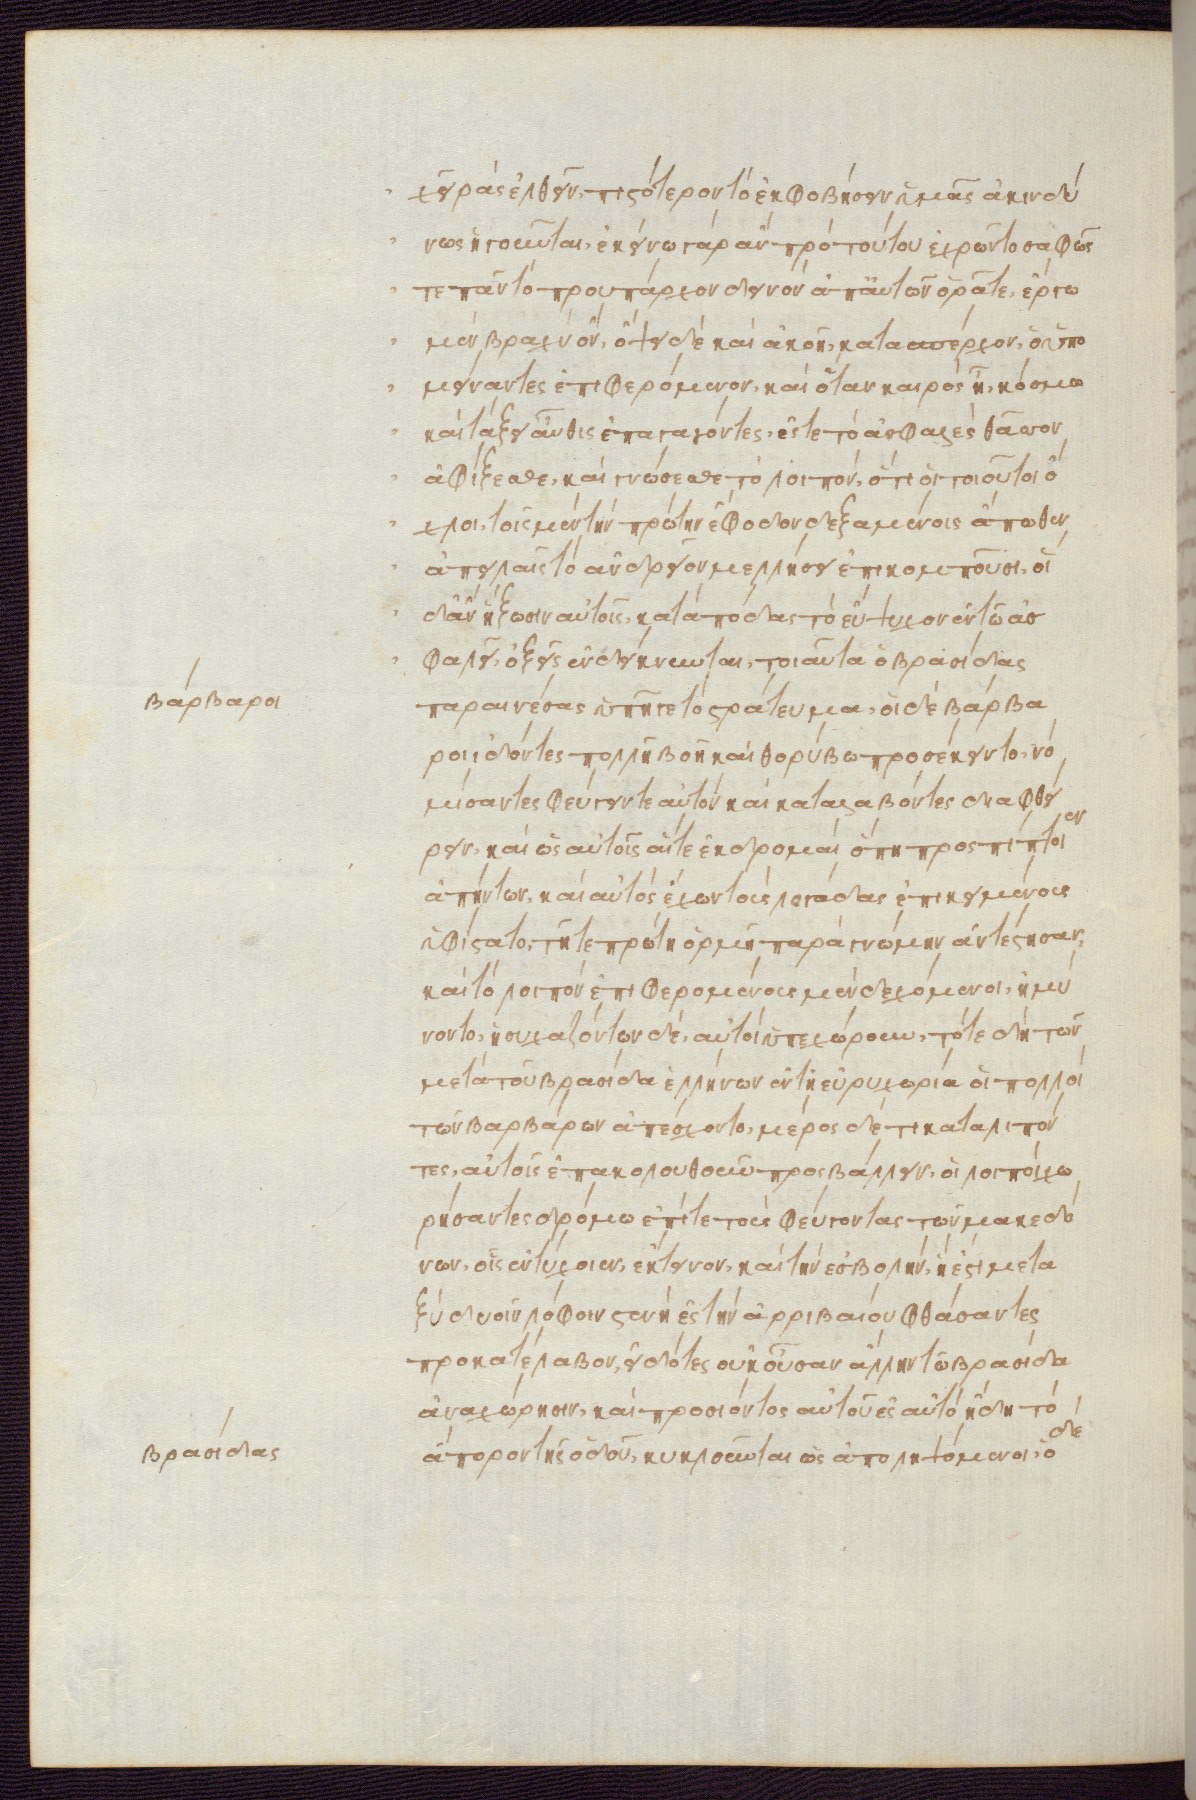 χεῖρας ἐλθεῖν, πιστότερον τὸ ἐκφοβήσειν ὑμᾶς ἀκινδύ
νως ἡγοῦνται, ἐκείνω γὰρ ἂν πρὸ τούτου ἐχρῶντο σαφῶς
τε πᾶν τὸ προυπάρχον δεινὸν ἀπ' αὐτῶν ὁρᾶτε, ἔργω
μὲν βραχὺ ὂν, ὄψει δὲ καὶ ἀκοῇ, κατασπέρχον, ὃ ὑπο
μείναντες ἐπιφερόμενον, καὶ ὅταν καιρὸς ᾖ, κόσμω
καὶ τάξει αὖθις ἐπαγαγόντες, ἔς τε τὸ ἀσφαλὲς θᾶσσον
ἀφίξεσθε, καὶ γνώσεσθε τὸ λοιπὸν, ὅτι οἱ τοιοῦτοι ὄ
χλοι, τοῖς μὲν τὴν πρώτην ἔφοδον δεξαμένοις ἄπωθεν
ἀπειλαῖς τὸ ἀνδρεῖον μελλήσει ἐπικομποῦσι, οἳ
δ' ἂν ἥξωσιν αὐτοῖς, κατὰ πόδας τὸ εὔψυχον ἐν τῶ ἀσ
φαλεῖ, ὀξεῖς ἐνδείκνυνται, τοιαῦτα ὁ βρασίδας
βάρβαροι
παραινέσας ὑπῆγε τὸ στράτευμα, οἱ δὲ βάρβα
ροι ἰδόντες πολλῇ βοῇ καὶ θορύβω προσέκειντο, νο
μίσαντες φεύγειν τε αὐτὸν καὶ καταλαβόντες διαφθεί
ρειν, καὶ ὡς αὐτοῖς αἵ τε ἐκδρομαὶ ὅπη προσπίπτοιεν
ἀπήντων, καὶ αὐτὸς ἔχων τοὺς λογάδας ἐπικειμένους
ὑφίστατο, τῇ τε πρώτη ὁρμῇ παρὰ γνώμην ἀντέστησαν,
καὶ τὸ λοιπὸν ἐπιφερομένους μὲν δεχόμενοι, ἠμύ
νοντο, ἡσυχαζόντων δὲ, αὐτοὶ ὑπεχώρουν, τότε δὴ τῶν
μετὰ τοῦ βρασίδα ἑλλήνων ἐν τῇ εὐρυχωρία οἱ πολλοὶ
τῶν βαρβάρων ἀπέσχοντο, μέρος δέ τι καταλιπόν
τες, αὐτοῖς ἐπακολουθοῦν προσβάλλειν, οἱ λοιποὶ χω
ρήσαντες δρόμω ἐπί τε τοὺς φεύγοντας τῶν μακεδό
νων, οἷς ἐντύχοιεν, ἔκτεινον, καὶ τὴν ἐσβολὴν, ἥ ἐστι μετα
ξὺ δυοῖν λόφοιν στενὴ ἐς τὴν ἀρριβαίου φθάσαντες
προκατέλαβον, εἰδότες οὐκ οὖσαν ἄλλην τῶ βρασίδα
ἀναχώρησιν, καὶ προσιόντος αὐτοῦ ἐς αὐτὸ ἤδη τὸ
βρασίδας
ἄπορον τῆς ὁδοῦ, κυκλοῦνται ὡς ἀποληψόμενοι, ὁ δὲ